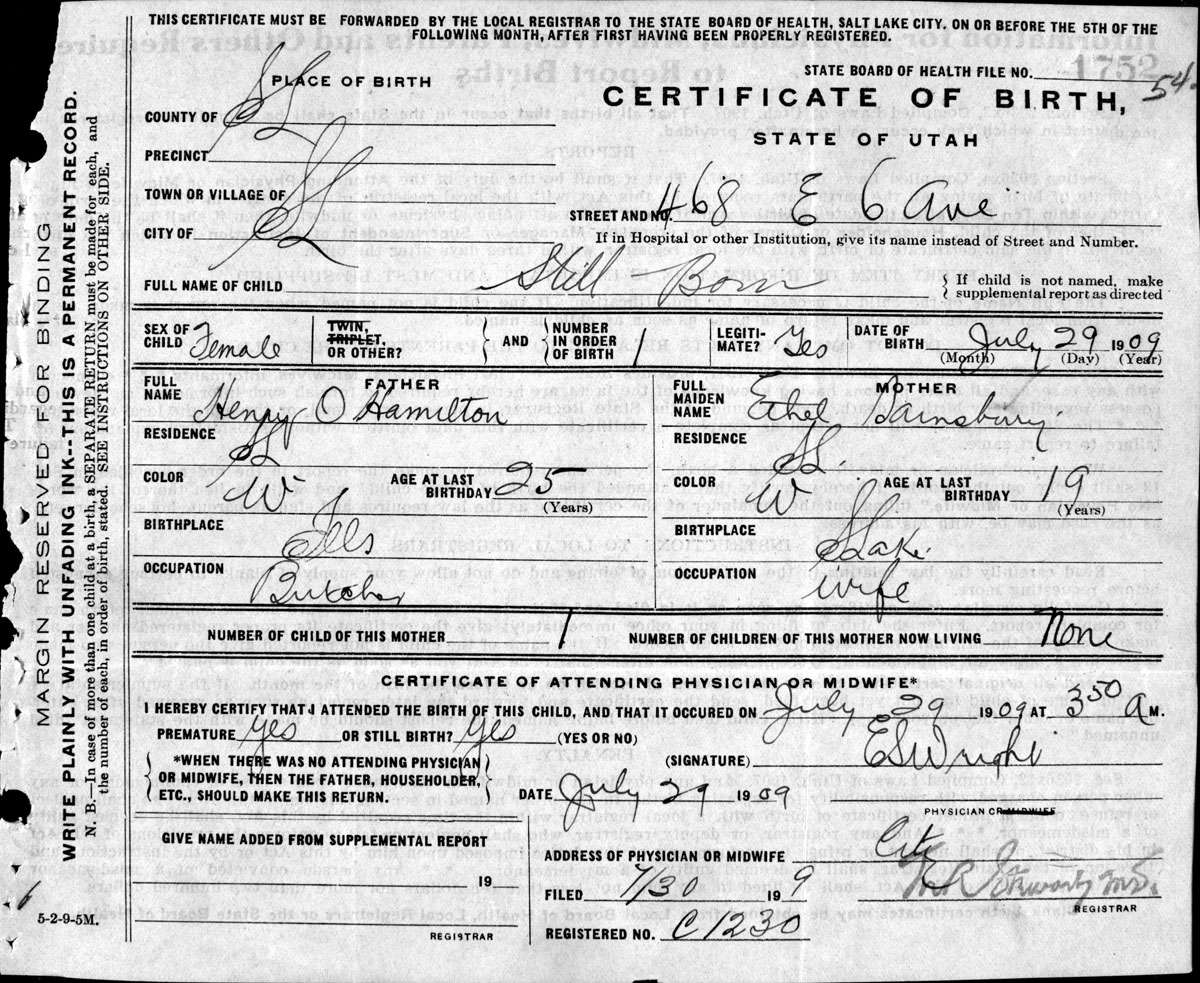 THIS CERTIFICATE MUST BE FORWARDED BY THE LOCAL REGISTRAR TO THE STATE BOARD OF HEALTH, SALT LAKE CITY. ON OR BEFORE THE 5TH OF THE
FOLLOWING MONTH, AFTER FIRST HAVING BEEN PROPERLY REGISTERED.
PLACE OF BIRTH
STATE BOARD OF HEALTH FILE NO. 54
1752
COUNTY OF SL
CERTIFICATE OF BIRTH,
STATE OF UTAH
PRECINCT
TOWN OR VILLAGE OF
CITY OF SL
STREET AND NO. 468 E 6 Ave
If in Hospital or other Institution, give its name instead of Street and Number.
FULL NAME OF CHILD Still Born
If child is not named, make
supplemental report as directed
SEX OF CHILD Female TWIN, TRIPLET, OR OTHER? AND NUMBER IN ORDER OF BIRTH 1 LEGITI-MATE? Yes DATE OF BIRTH July 29 1909
(Month) (Day) (Year)
FATHER
FULL NAME Henry O Hamilton
RESIDENCE SL
COLOR W AGE AT LAST BIRTHDAY 25
(Years)
BIRTHPLACE Ills
OCCUPATION Butcher
MOTHER
FULL MAIDEN NAME Ethel Sainsbury
RESIDENCE SL.
COLOR W AGE AT LAST BIRTHDAY 19
(Years)
BIRTHPLACE S Lake
OCCUPATION Wife
NUMBER OF CHILD OF THIS MOTHER 1 NUMBER OF CHILDREN OF THIS MOTHER NOW LIVING None
CERTIFICATE OF ATTENDING PHYSICIAN OR MIDWIFE*
I HEREBY CERTIFY THAT I ATTENDED THE BIRTH OF THIS CHILD, AND THAT IT OCCURED ON July 29 1909 AT 350 A M.
PREMATURE Yes OR STILL BIRTH? Yes (YES OR NO)
*WHEN THERE WAS NO ATTENDING PHYSICIAN
OR MIDWIFE, THEN THE FATHER, HOUSEHOLDER,
ETC., SHOULD MAKE THIS RETURN.
(SIGNATURE) ES Wright
DATE July 29 1909
PHYSICIAN OR MIDWIFE
GIVE NAME ADDED FROM SUPPLEMENTAL REPORT
19
REGISTRAR
ADDRESS OF PHYSICIAN OR MIDWIFE City
FILED 7/30 19 9
M.D.
REGISTRAR
REGISTERED NO. C 1230
5-2-9-5M.
MARGIN RESERVED FOR BINDING
WRITE PLAINLY WITH UNFADING INK--THIS IS A PERMANENT RECORD.
N. B.—In case of more than one child at a birth, a SEPARATE RETURN must be made for each, and
the number of each, in order of birth, stated. SEE INSTRUCTIONS ON OTHER SIDE.